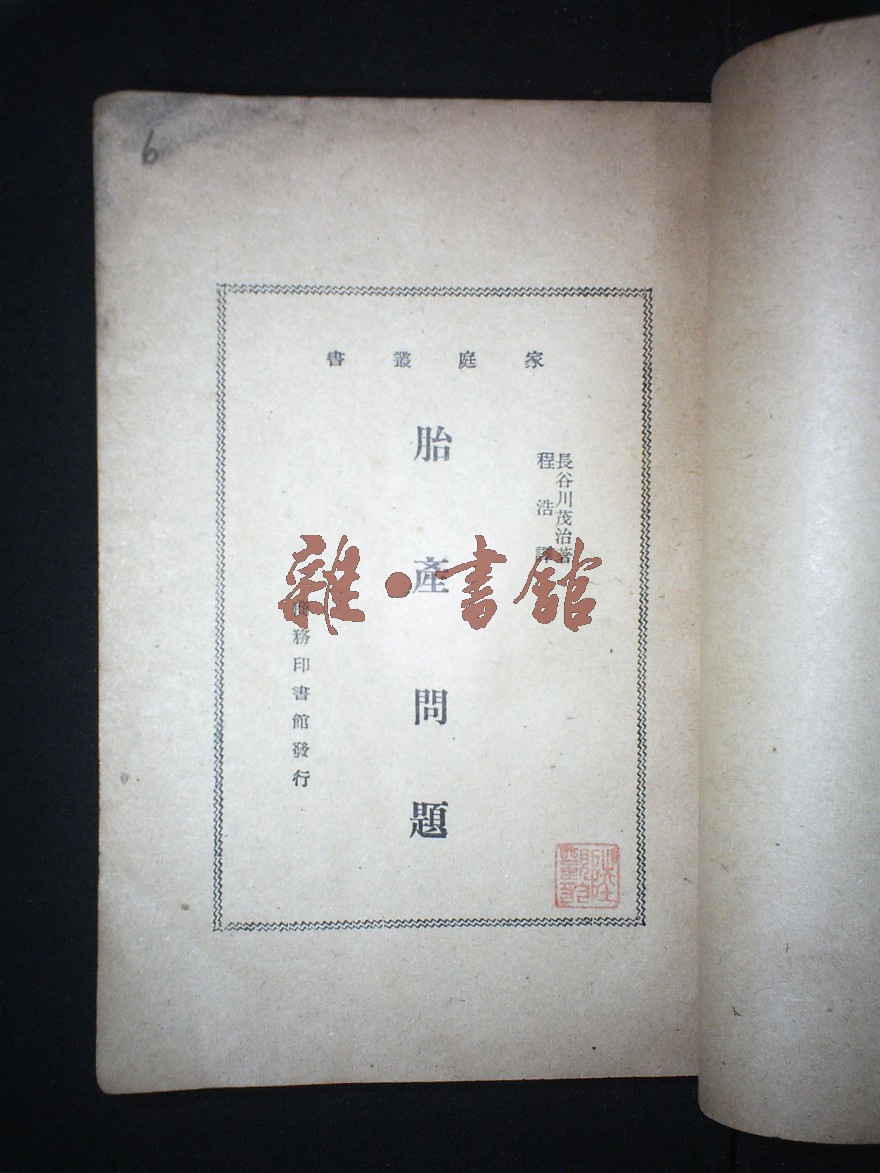 6
家庭叢書
長谷川茂治著
程浩譯
胎產問題
商務印書館發行
雜·書館